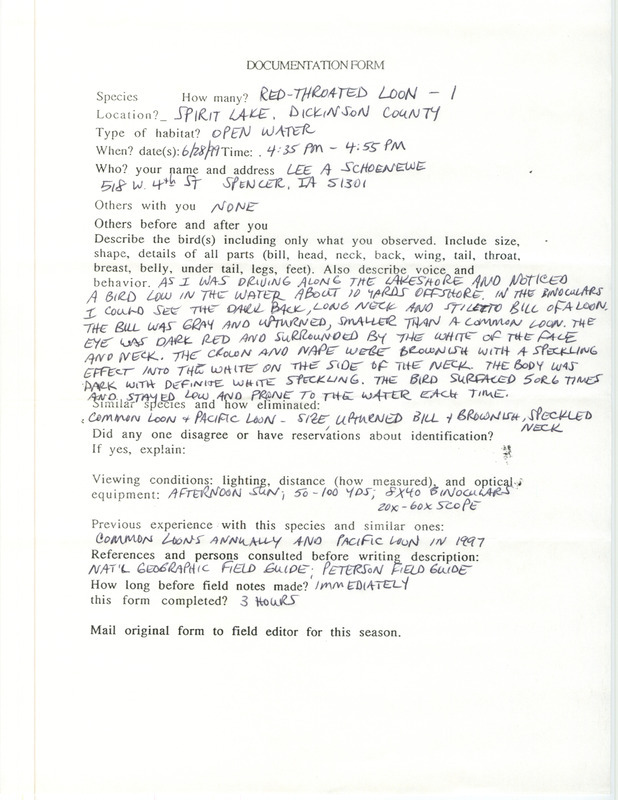 DOCUMENTATION FORM
Species How many? RED-THROATED LOON - 1
Location? SPIRIT LAKE, DICKINSON COUNTY
Type of habitat? OPEN WATER
When? date(s): 6/28/99 Time: . 4:35 PM - 4:55 PM
Who? your name and address LEE A SCHOENEWE
518 W. 4th ST SPENCER, IA 51301
Others with you NONE
Others before and after you
Describe the bird(s) including only what you observed. Include size,
shape, details of all parts (bill, head, neck, back, wing, tail, throat,
breast, belly, under tail, legs, feet). Also describe voice and
behavior. AS I WAS DRIVING ALONG THE LAKESHORE AND NOTICED
A BIRD LOW IN THE WATER ABOUT 10 YARDS OFFSHORE. IN THE BINOCULARS
I COULD SEE THE DARK BACK, LONG NECK AND STILETTO BILL OF A LOON.
THE BILL WAS GRAY AND UPTURNED, SMALLER THAN A COMMON LOON. THE
EYE WAS DARK RED AND SURROUNDED BY THE WHITE OF THE FACE
AND NECK. THE CROWN AND NAPE WERE BROWNISH WITH A SPECKLING
EFFECT INTO THE WHITE ON THE SIDE OF THE NECK. THE BODY WAS
DARK WITH DEFINITE WHITE SPECKLING. THE BIRD SURFACED 5 OR 6 TIMES
AND STAYED LOW AND PRONE TO THE WATER EACH TIME.
Similar species and how eliminated:
COMMON LOON + PACIFIC LOON - SIZE, UPTURNED BILL + BROWNISH, SPECKLED
NECK
Did any one disagree or have reservations about identification?
If yes, explain:
Viewing conditions: lighting, distance (how measured), and optical
equipment: AFTERNOON SUN; 50-100 YDS; 8X40 BINOCULARS
20X-60X SCOPE
Previous experience with this species and similar ones:
COMMON LOONS ANNUALLY AND PACIFIC LOON IN 1997
References and persons consulted before writing description:
NAT'L GEOGRAPHIC FIELD GUIDE; PETERSON FIELD GUIDE
How long before field notes made? IMMEDIATELY
this form completed? 3 HOURS
Mail original form to field editor for this season.